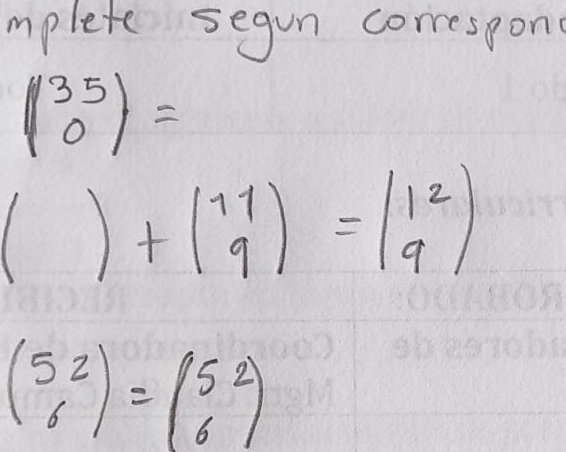 mplete segun correspond
(35
0) =
( ) + (11
9) = (12
9)
(52
6) = (52
6)